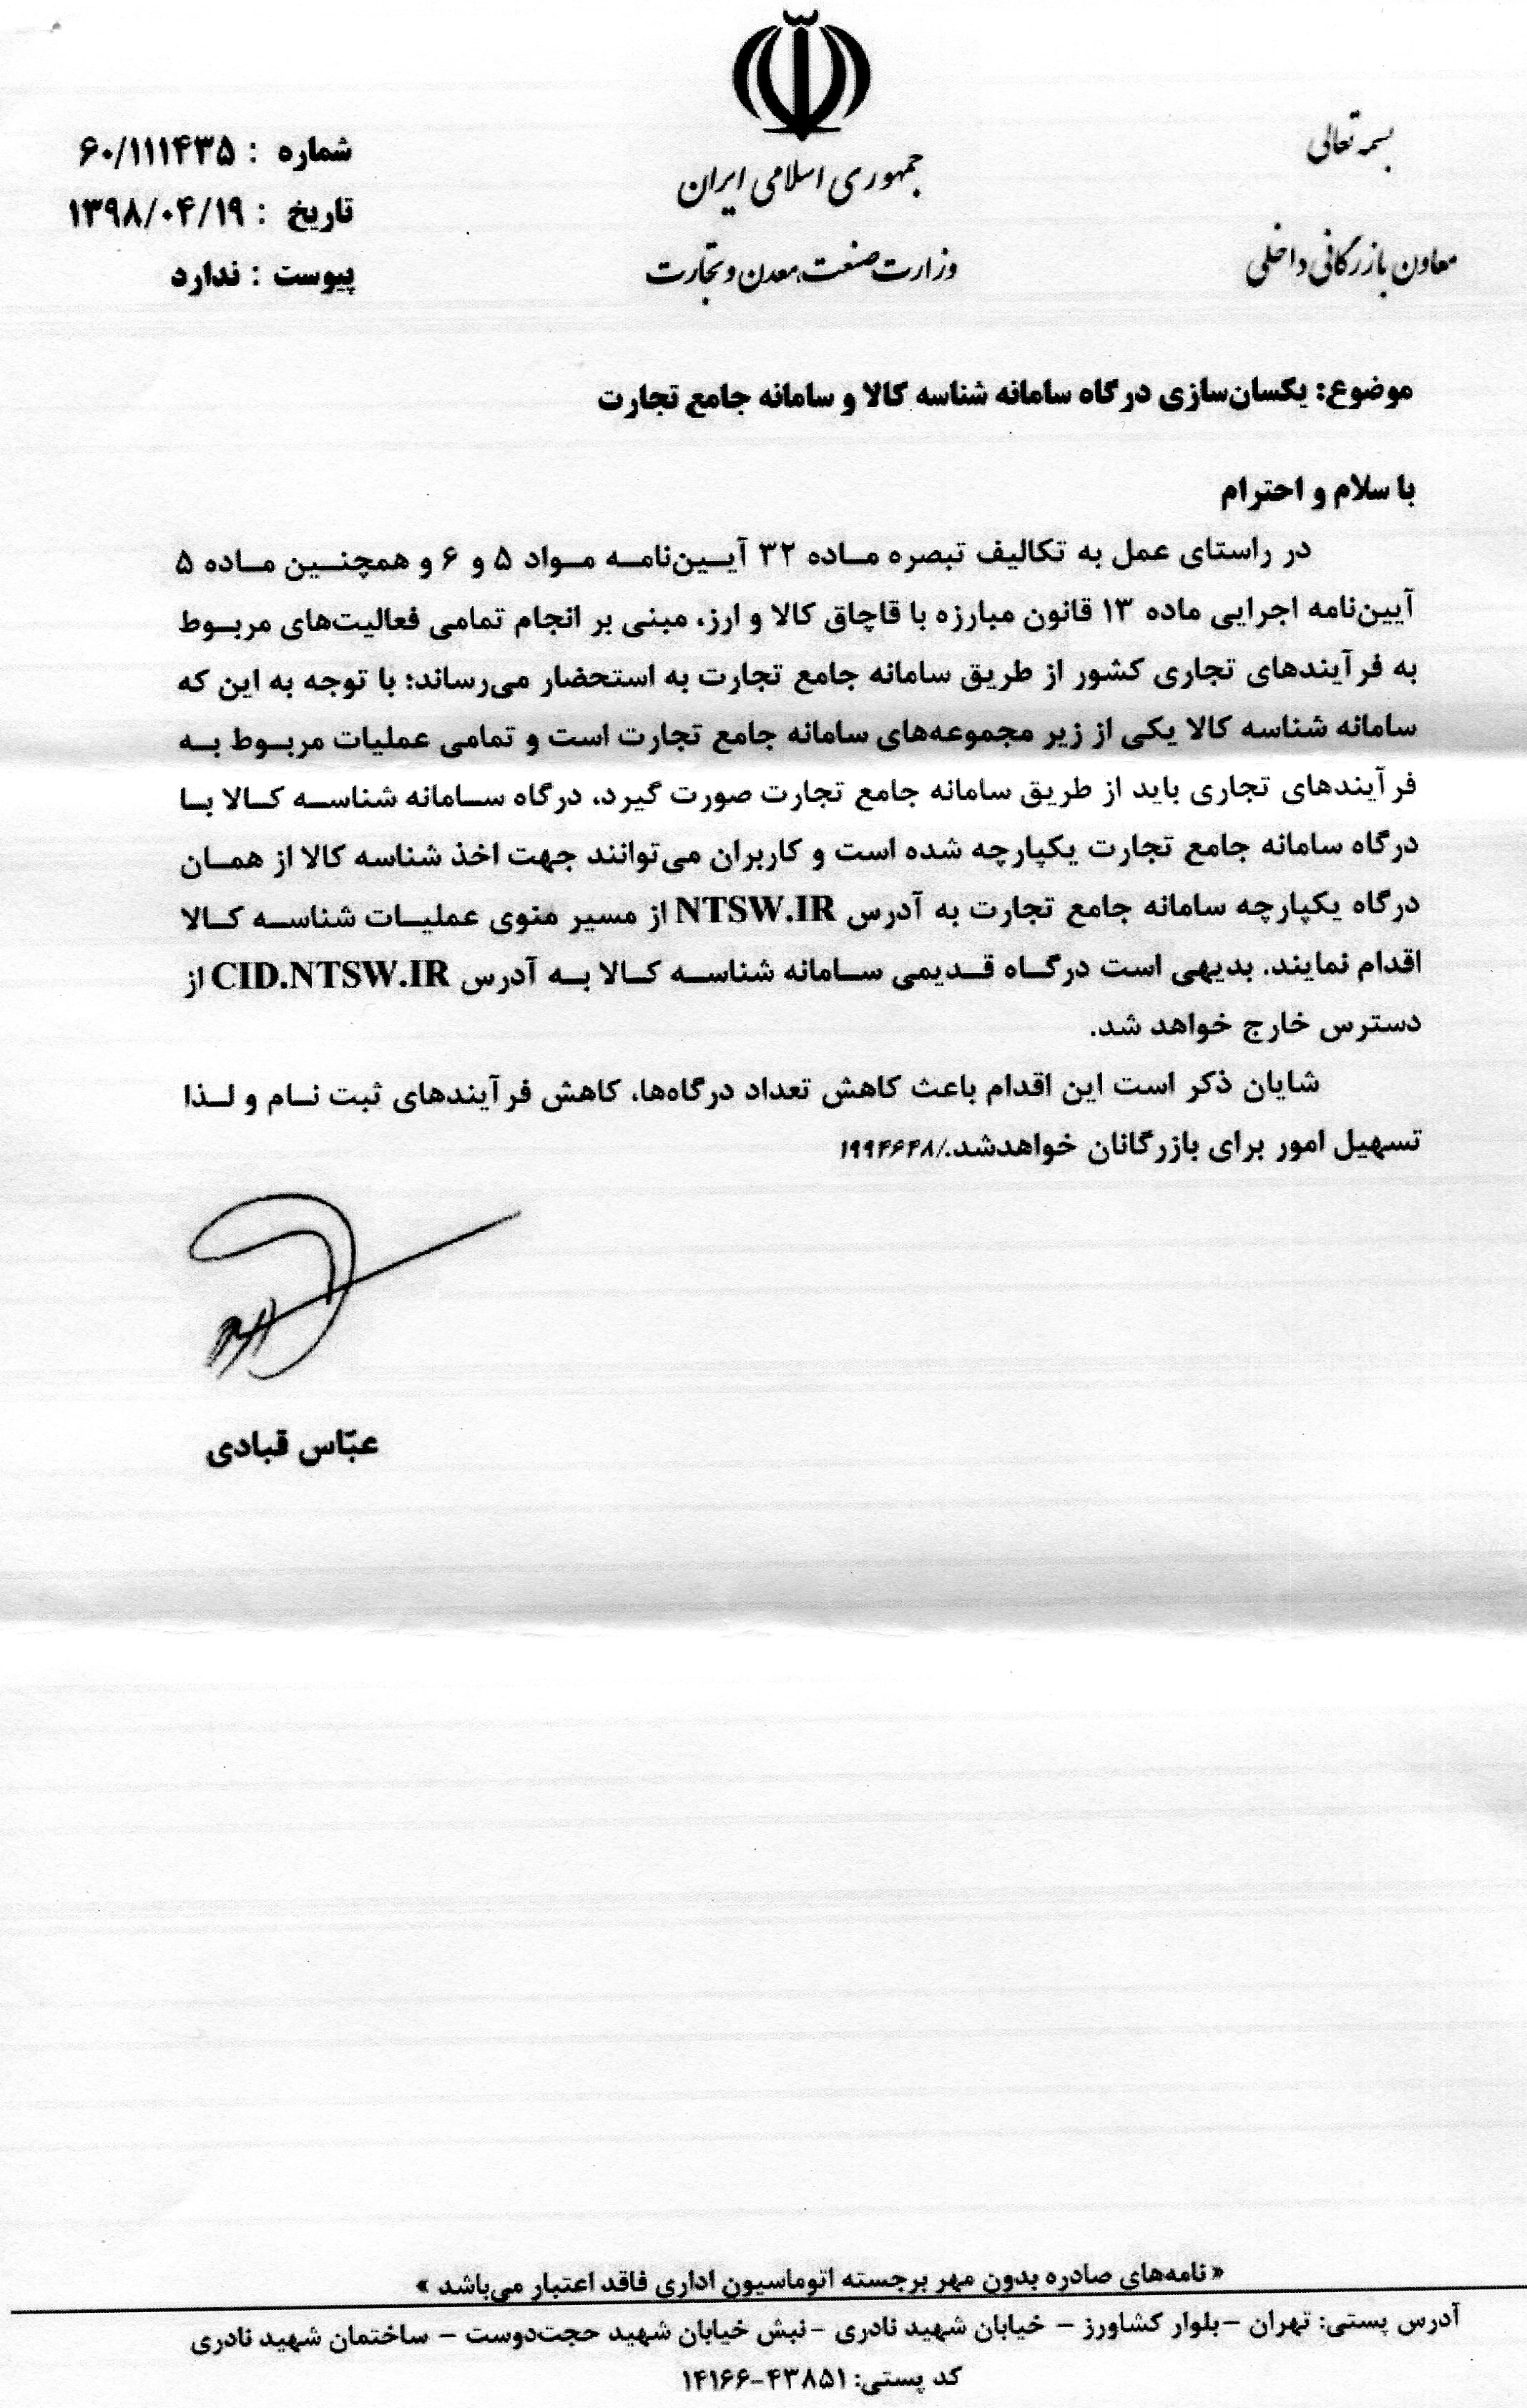 بسمه تعالی
جمهوری اسلامی ایران
وزارت صنعت، معدن و تجارت
معاون بازرگانی داخلی
شماره : ۶۰/۱۱۱۴۳۵
تاریخ : ۱۳۹۸/۰۴/۱۹
پیوست : ندارد
موضوع: یکسان‌سازی درگاه سامانه شناسه کالا و سامانه جامع تجارت
با سلام و احترام
در راستای عمل به تکالیف تبصره مـاده ۳۲ آیـین‌نامـه مـواد ۵ و ۶ و همچنـین مـاده ۵
آیین‌نامه اجرایی ماده ۱۳ قانون مبارزه با قاچاق کالا و ارز، مبنی بر انجام تمامی فعالیت‌های مربـوط
به فرآیندهای تجاری کشور از طریق سامانه جامع تجارت به استحضار می‌رساند؛ با توجه به این که
سامانه شناسه کالا یکی از زیر مجموعه‌های سامانه جامع تجارت است و تمامی عملیات مربـوط بـه
فرآیندهای تجاری باید از طریق سامانه جامع تجارت صورت گیرد، درگاه سـامانه شناسـه کـالا بـا
درگاه سامانه جامع تجارت یکپارچه شده است و کاربران می‌توانند جهت اخذ شناسه کالا از همـان
درگاه یکپارچه سامانه جامع تجارت به آدرس NTSW.IR از مسیر منوی عملیـات شناسـه کـالا
اقدام نمایند. بدیهی است درگـاه قـدیمی سـامانه شناسـه کـالا بـه آدرس CID.NTSW.IR از
دسترس خارج خواهد شد.
شایان ذکر است این اقدام باعث کاهش تعداد درگاه‌ها، کاهش فرآیندهای ثبت نـام و لـذا
تسهیل امور برای بازرگانان خواهدشد./۱۹۹۴۶۴۸
عبّاس قبادی
« نامه‌های صادره بدون مهر برجسته اتوماسیون اداری فاقد اعتبار می‌باشد »
آدرس پستی: تهران –بلوار کشاورز – خیابان شهید نادری –نبش خیابان شهید حجت‌دوست – ساختمان شهید نادری
کد پستی: ۴۳۸۵۱-۱۴۱۶۶